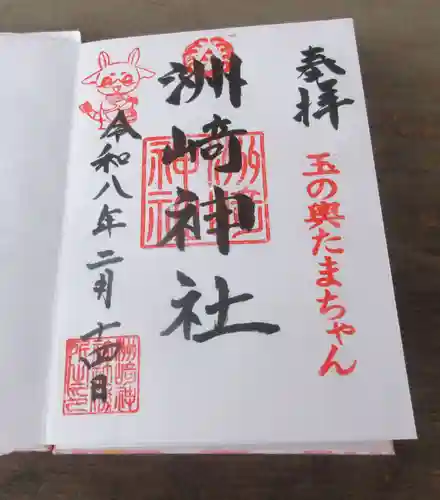 奉拝
玉の輿たまちゃん
洲崎神社
洲崎神社
令和八年二月十四日